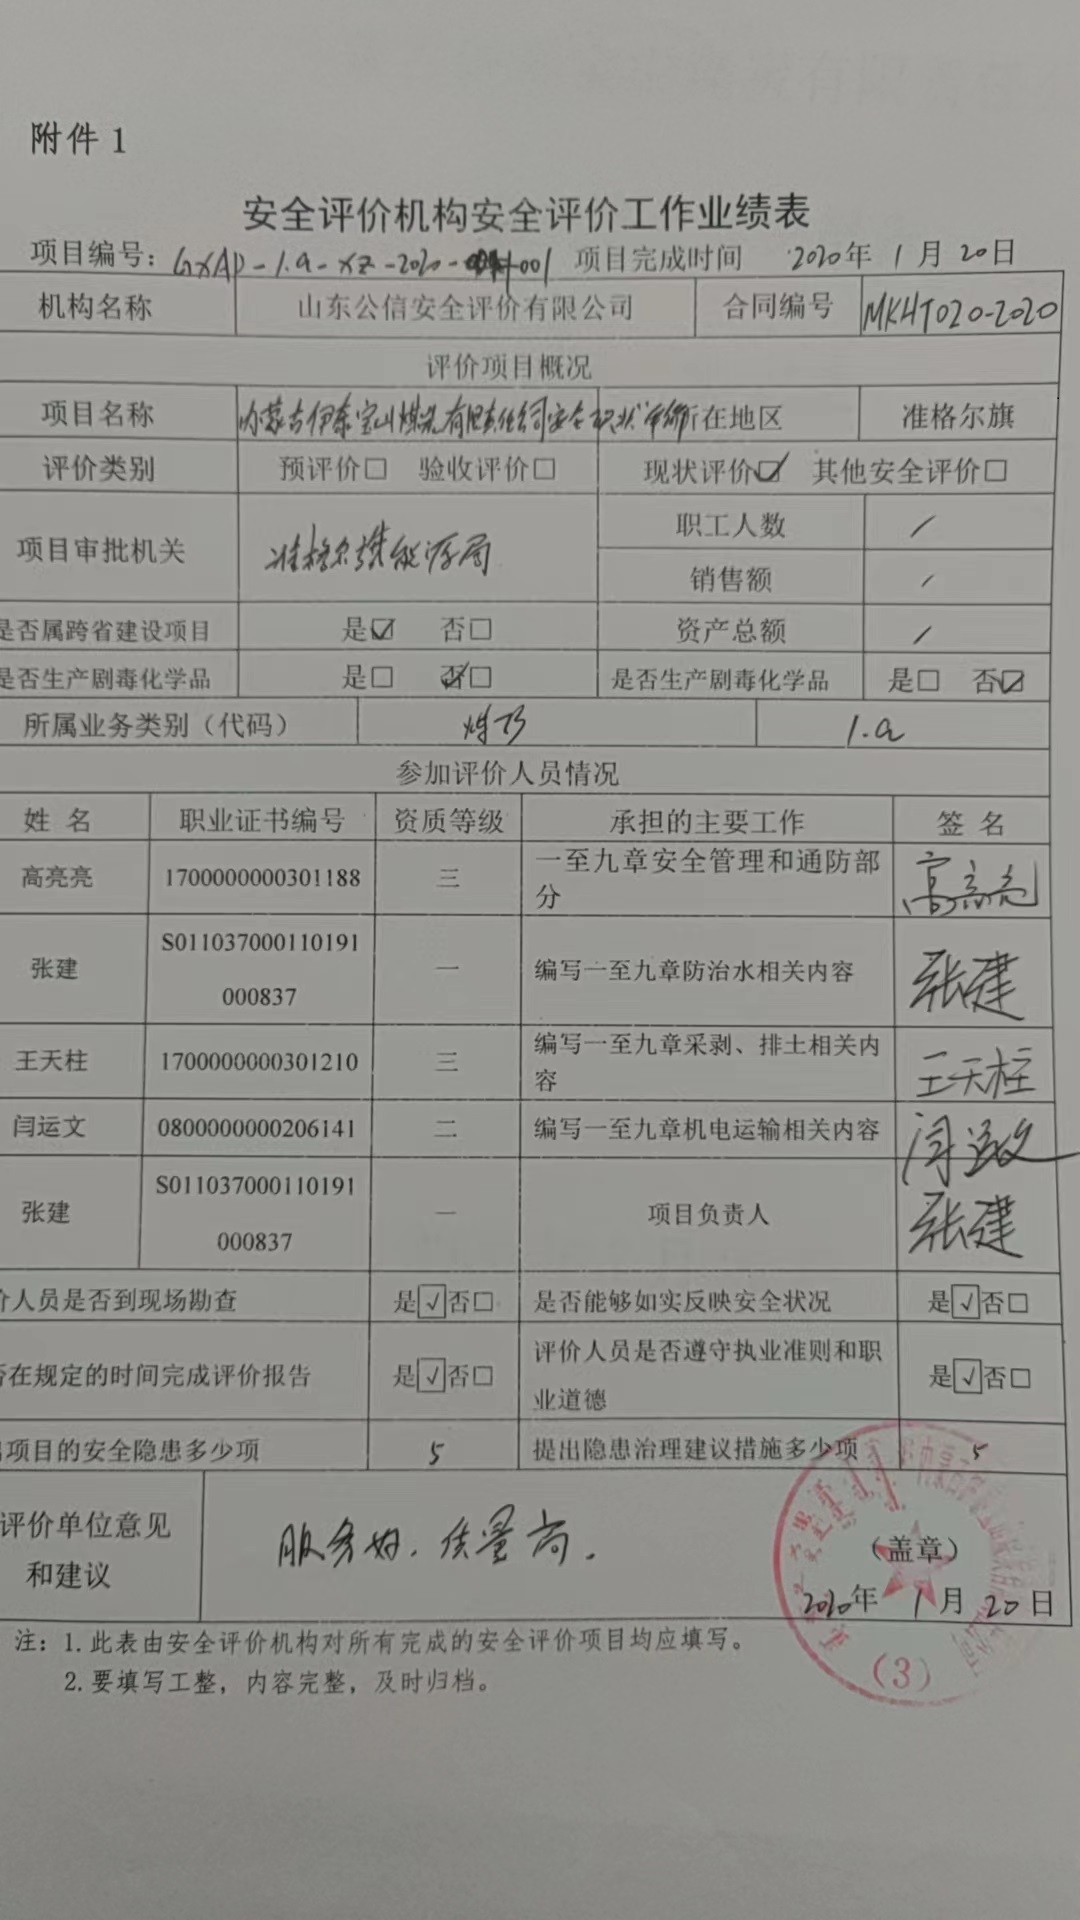 附件 1
安全评价机构安全评价工作业绩表
项目编号：GXAP-1.a-XZ-2020-001 项目完成时间 2020年 1月 20日
机构名称 山东公信安全评价有限公司 合同编号 MKHT020-2020
评价项目概况
项目名称 内蒙古伊泰宝山煤炭有限责任公司安全现状评价 所在地区 准格尔旗
评价类别 预评价□ 验收评价□ 现状评价☑ 其他安全评价□
项目审批机关 准格尔旗能源局 职工人数 /
销售额 /
是否属跨省建设项目 是☑ 否□ 资产总额 /
是否生产剧毒化学品 是□ 否☑ 是否生产剧毒化学品 是□ 否☑
所属业务类别（代码） 煤炭 1.a
参加评价人员情况
姓 名 职业证书编号 资质等级 承担的主要工作 签 名
高亮亮 1700000000301188 三 一至九章安全管理和通防部分 高亮亮
张建 S011037000110191000837 一 编写一至九章防治水相关内容 张建
王天柱 1700000000301210 三 编写一至九章采剥、排土相关内容 王天柱
闫运文 0800000000206141 二 编写一至九章机电运输相关内容 闫运文
张建 S011037000110191000837 一 项目负责人 张建
价人员是否到现场勘查 是☑否□ 是否能够如实反映安全状况 是☑否□
否在规定的时间完成评价报告 是☑否□ 评价人员是否遵守执业准则和职业道德 是☑否□
出项目的安全隐患多少项 5 提出隐患治理建议措施多少项 5
评价单位意见和建议 服务好，质量高。 （盖章）
2020年 1月 20日
（3）
注：1.此表由安全评价机构对所有完成的安全评价项目均应填写。
2.要填写工整，内容完整，及时归档。